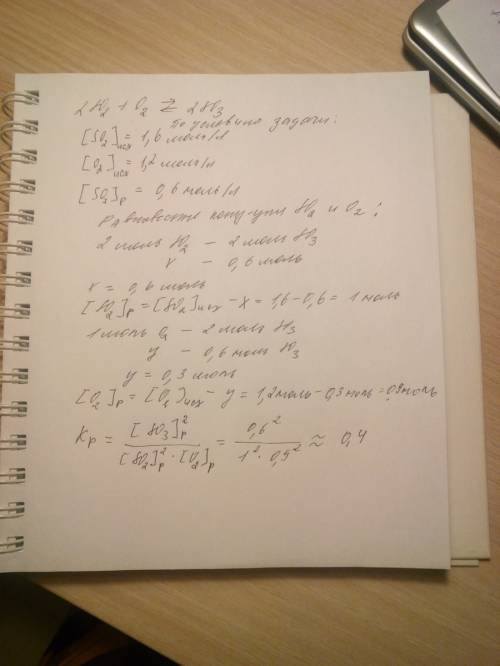 2SO₂ + O₂ ⇄ 2SO₃
По условию задачи:
[SO₂]исх = 1,6 моль/л
[O₂]исх = 1,2 моль/л
[SO₃]р = 0,6 моль/л
Равновесные конц-ции SO₂ и O₂:
2 моль SO₂ – 2 моль SO₃
x – 0,6 моль
x = 0,6 моль
[SO₂]р = [SO₂]исх – x = 1,6 – 0,6 = 1 моль
1 моль O₂ – 2 моль SO₃
y – 0,6 моль SO₃
y = 0,3 моль
[O₂]р = [O₂]исх – y = 1,2 моль – 0,3 моль = 0,9 моль
Kр = [SO₃]р² / [SO₂]р² · [O₂]р = 0,6² / 1² · 0,9² ≈ 0,4